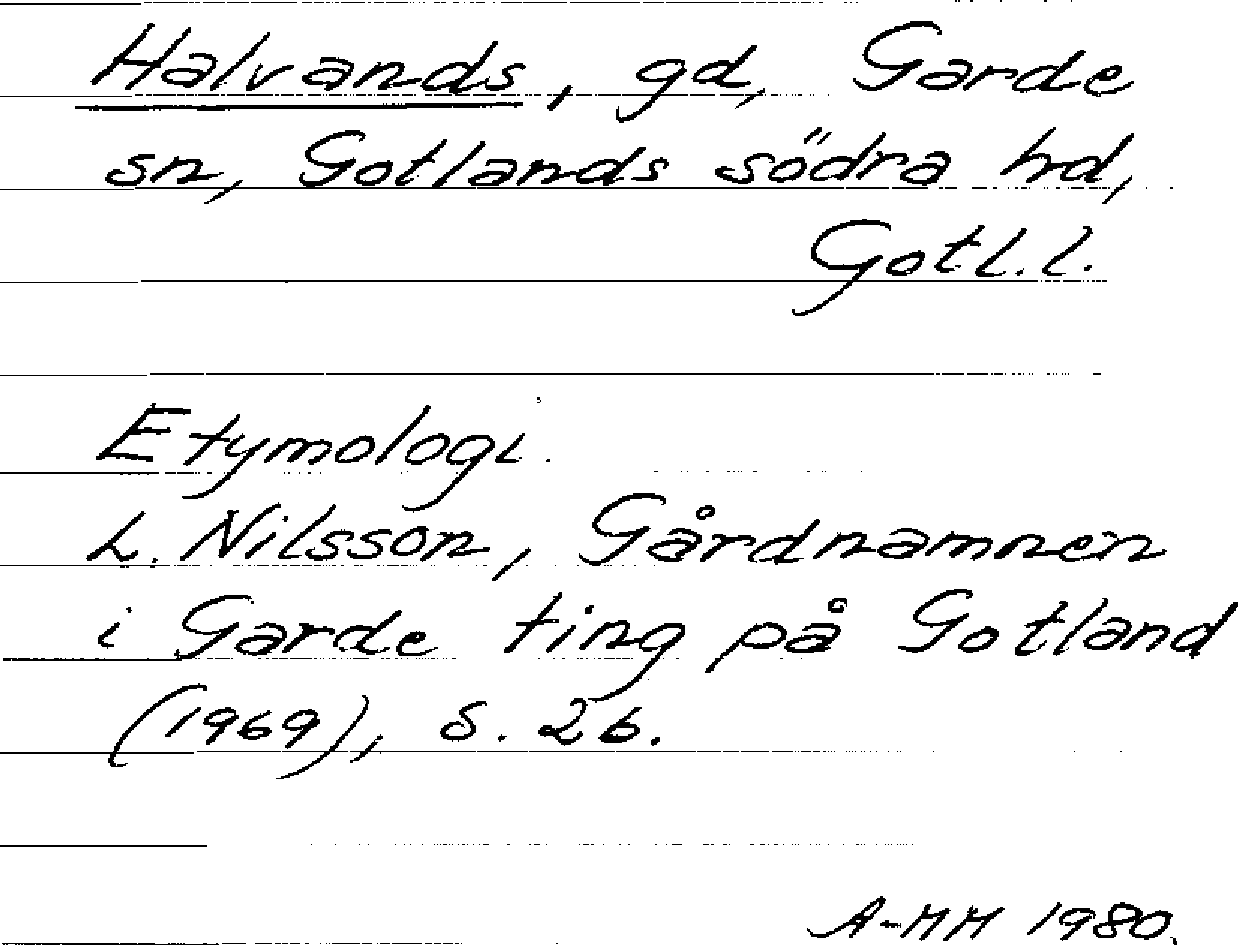 Halvands, gd, Garde
sn, Gotlands södra hd,
Gotl. l.
Etymologi.
L. Nilsson, Gårdnamnen
i Garde ting på Gotland
(1969), s. 26.
A-MM 1980.